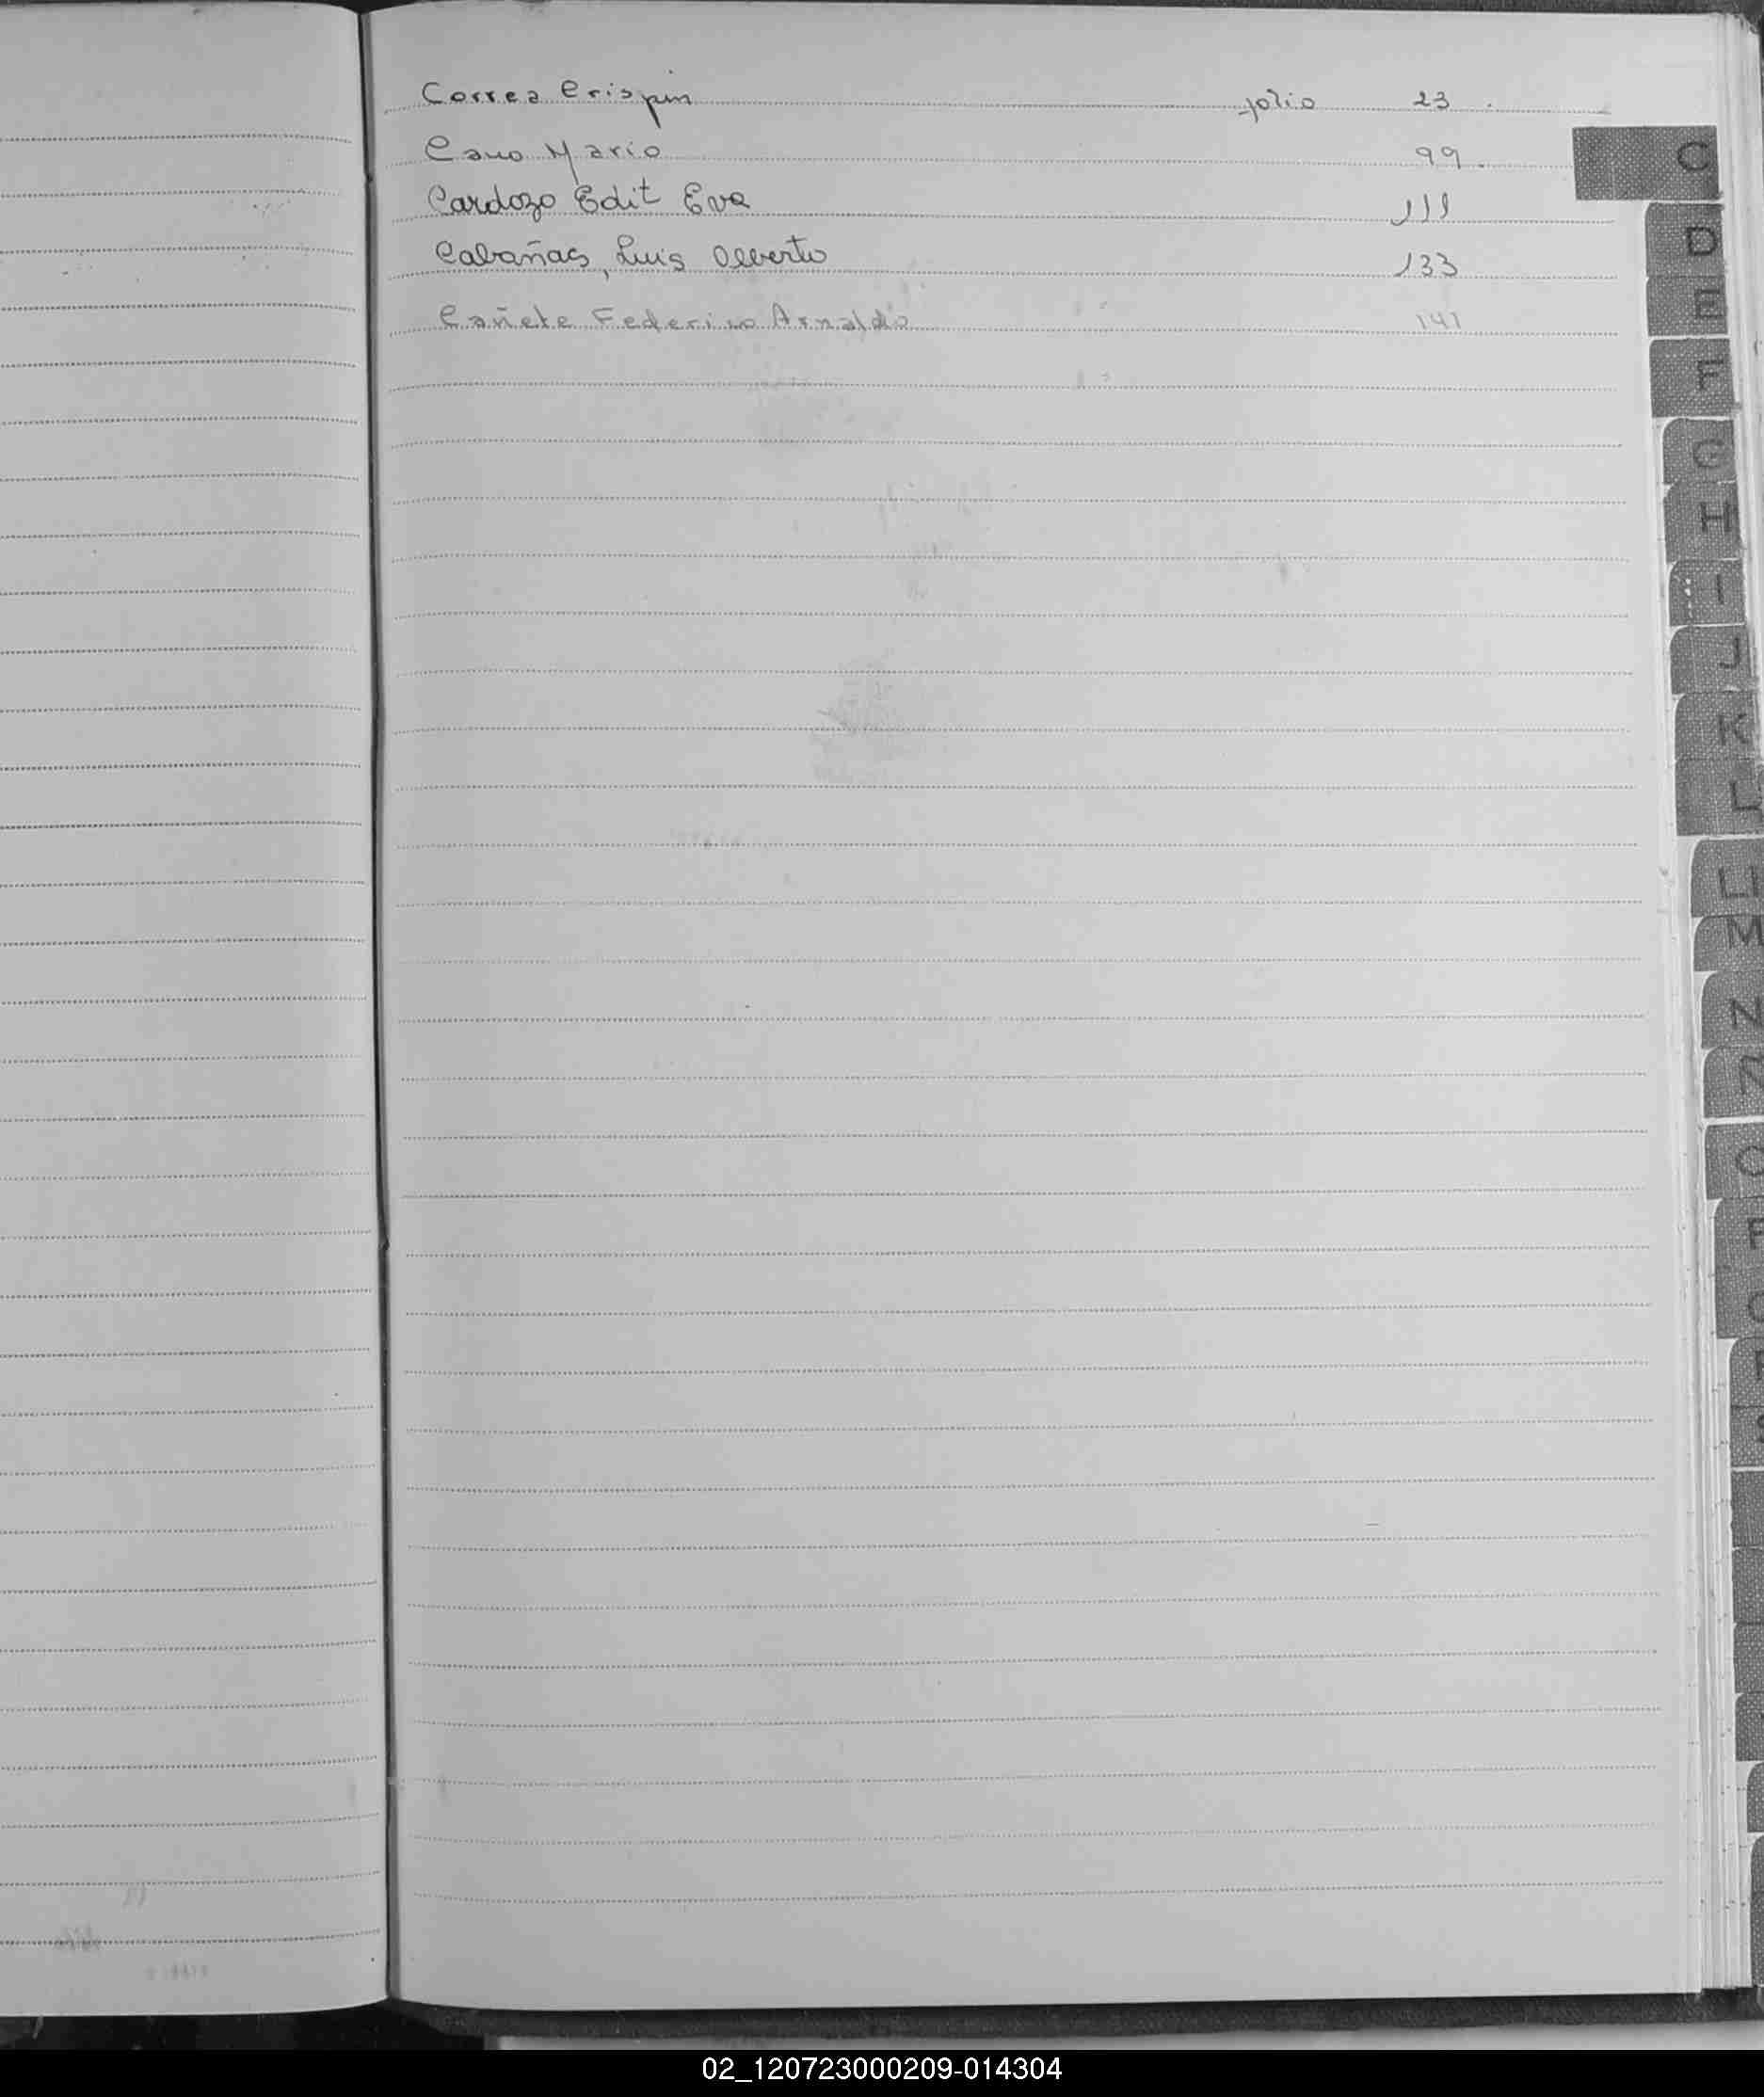 Correa Crispin folio 23.
Cano Mario 99.
Cardozo Edit Eva 111
Cabañas, Luis Alberto 133
Cañete Federico Arnaldo 141
C
D
E
F
G
H
I
J
K
L
LL
M
N
Ñ
O
P
Q
R
S
02_120723000209-014304